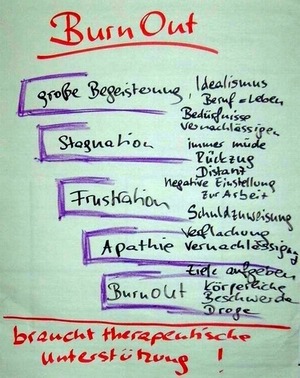 BurnOut
große Begeisterung
Idealismus
Beruf = Leben
Bedürfnisse
vernachlässigen
Stagnation
immer müde
Rückzug
Distanz
Frustration
negative Einstellung
zur Arbeit
Schuldzuweisung
Apathie
Verflachung
Vernachlässigung
Ziele aufgeben
BurnOut
Körperliche
Beschwerde
Droge
braucht therapeutische
Unterstützung !